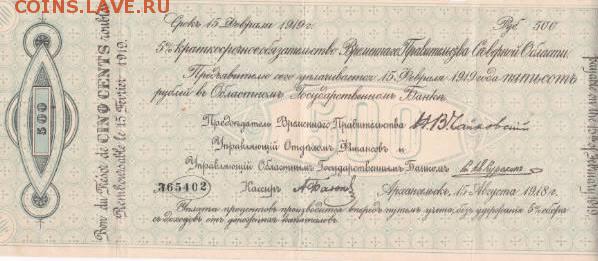 COINS.LAVE.RU
Срокъ 15 Февраля 1919 г. Руб. 500
5% краткосрочное обязательство Временнаго Правительства Сѣверной Области.
Предъявителю сего уплачивается 15 Февраля 1919 года пятьсотъ
рублей въ Областномъ Государственномъ Банкѣ.
Предсѣдатель Временнаго Правительства Н. В. Чайковскій
Управляющій Отдѣломъ Финансовъ и
Управляющій Областнымъ Государственнымъ Банкомъ
365402 Кассиръ Архангельскъ, 15 Августа 1918 г.
Уплата процентовъ производится впередъ путемъ учета, безъ удержанія 5% сбора
съ доходовъ отъ денежныхъ капиталовъ.
500
500
Bon du Trésor de CINQ CENTS roubles
Remboursable le 15 Février 1919.
payable on the 15 of February 1919.